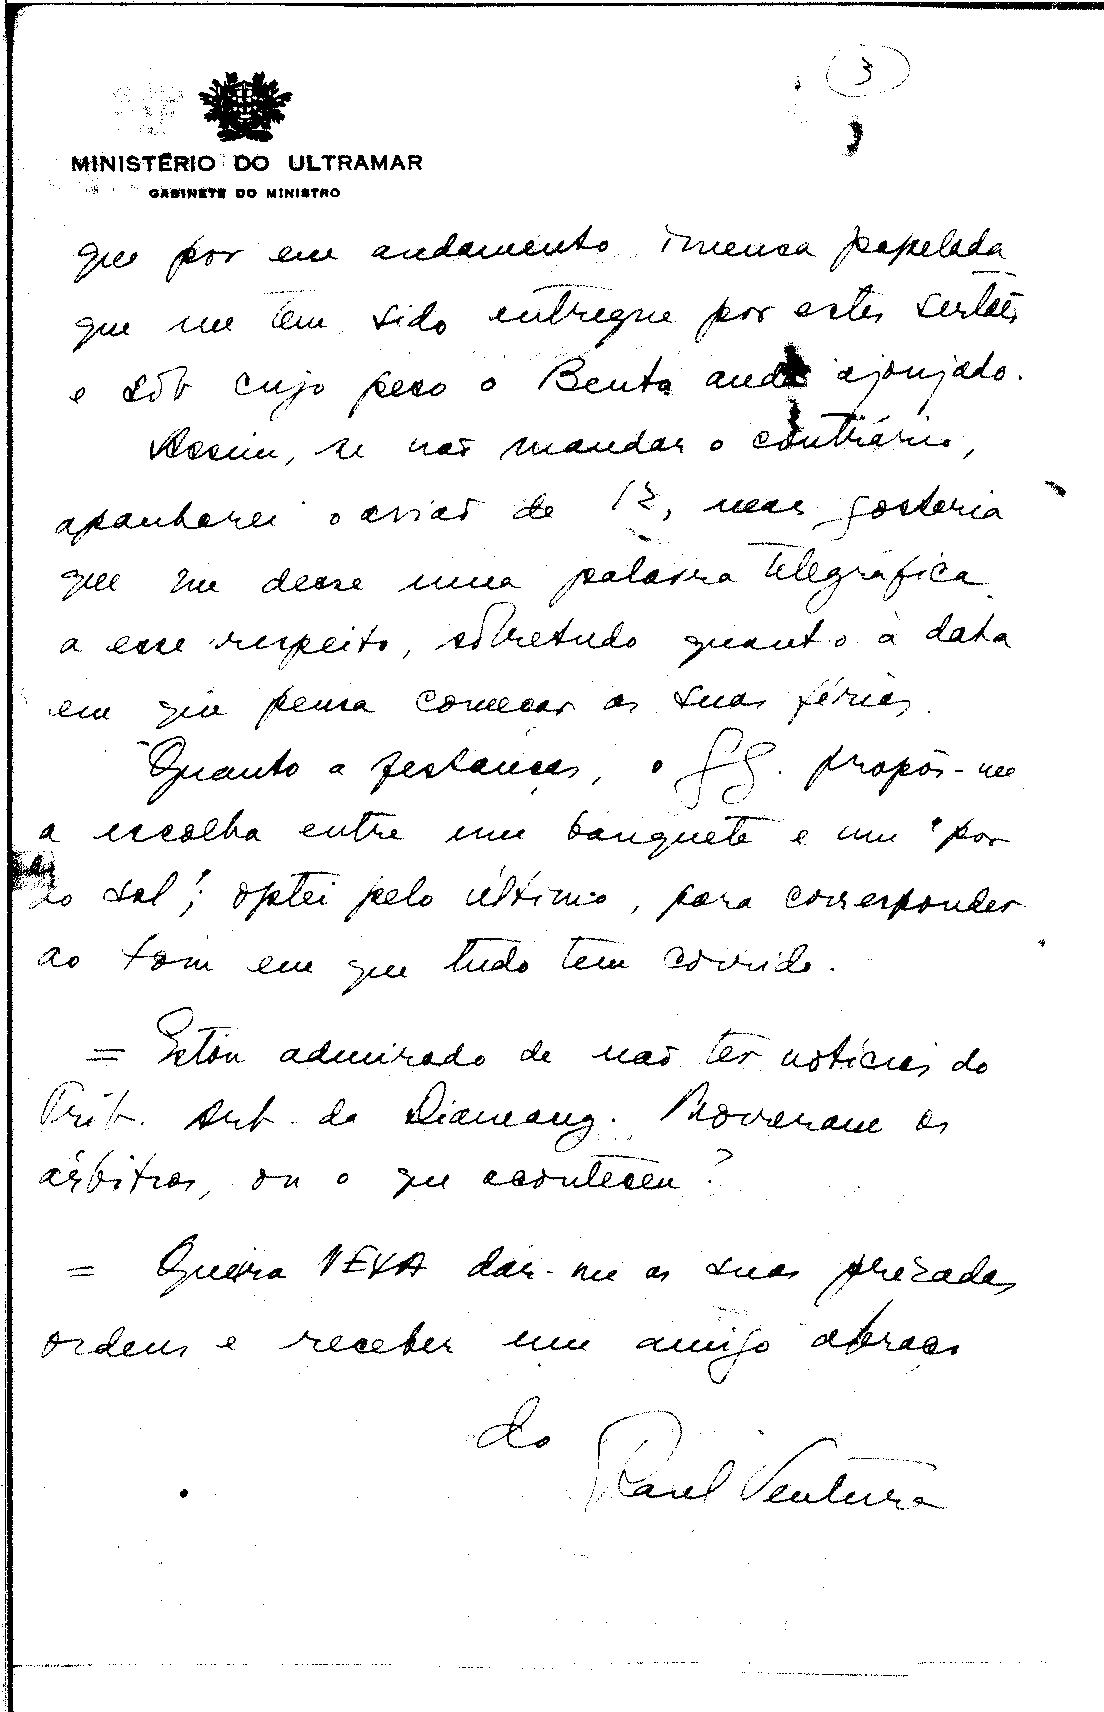 3
MINISTÉRIO DO ULTRAMAR
GABINETE DO MINISTRO
que por em andamento imensa papelada
que me tem sido entregue por estes sertões
e sôb cujo peso o Benta anda ajoujado.
Assim, se não mandar o contrário,
apanharei o avião de 12, mas gostaria
que me desse uma palavra telegráfica
a esse respeito, sobretudo quanto à data
em que pensa começar as suas férias.
Quanto a festanças, o GG. propôs-me
a escolha entre um banquete e um "por
do sol"; optei pelo último, para corresponder
ao tom em que tudo tem corrido.
= Estou admirado de não ter notícias do
Trib. Arb. da Diamang. Morreram os
árbitros, ou o que aconteceu?
= Queira VEXA dar-me as suas prezadas
ordens e receber um amigo abraço
do
Raul Ventura